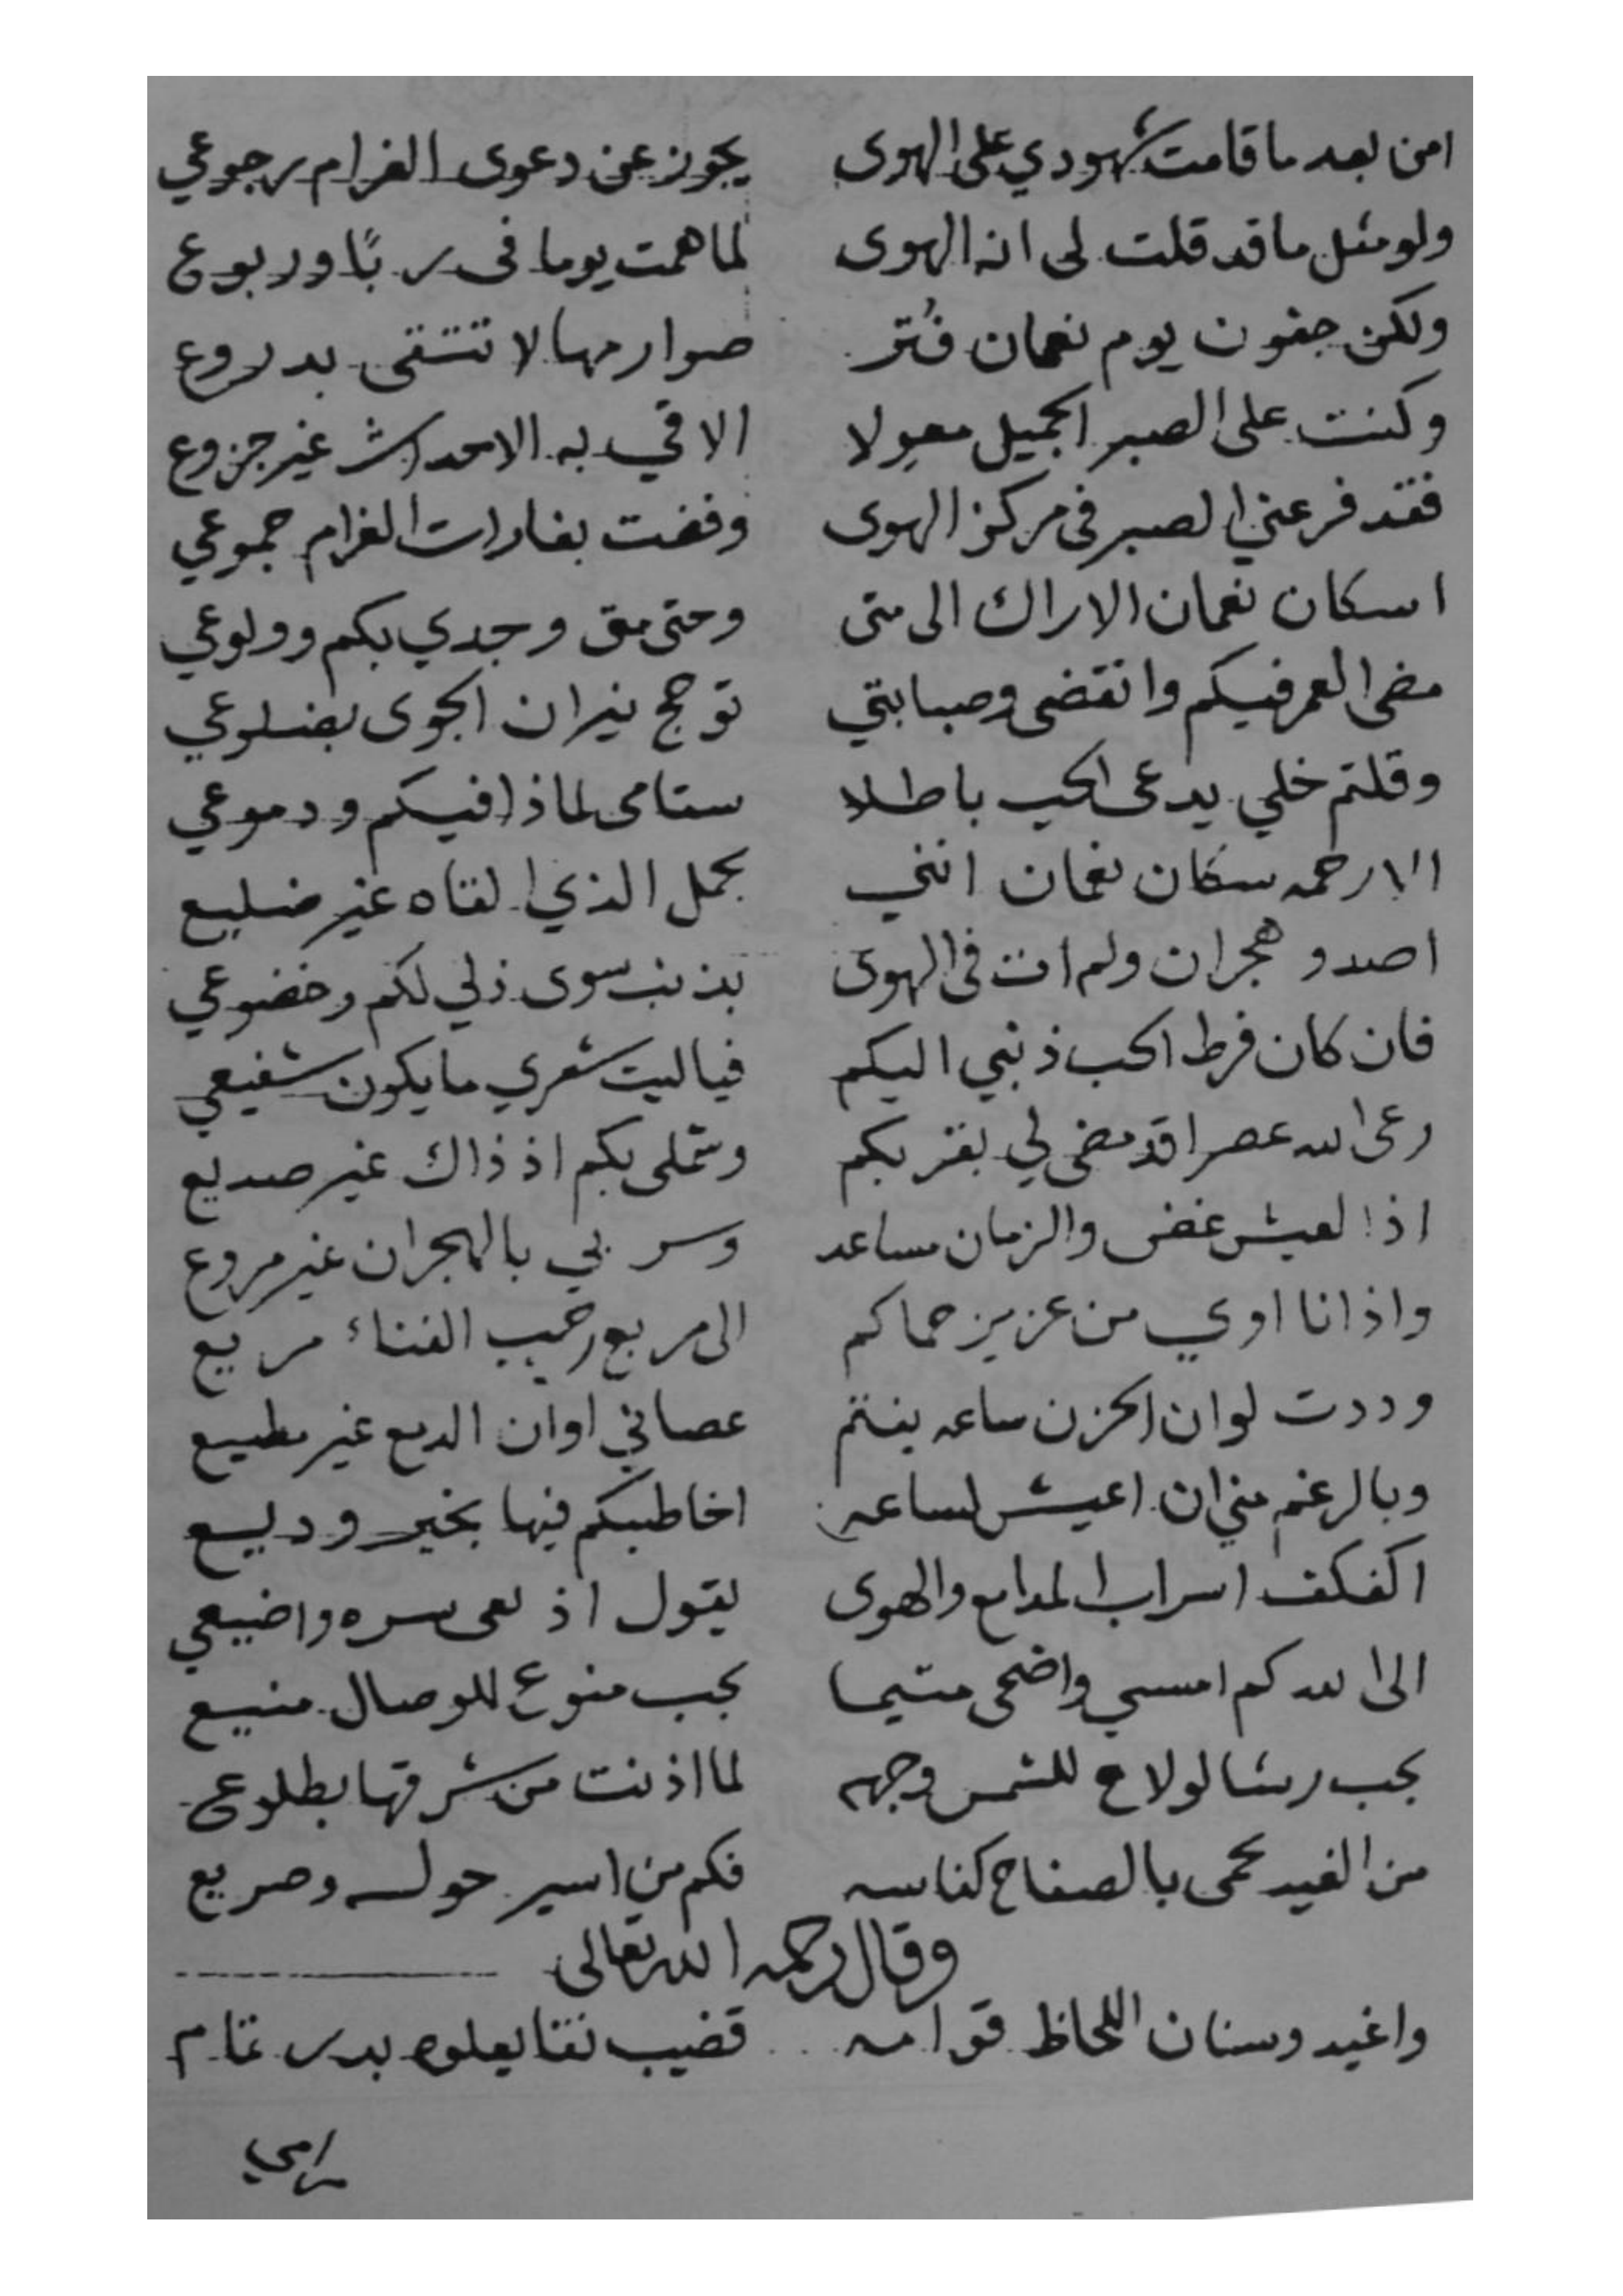 امن بعد ما قامت شهودي على الهوى يجوز عن دعوى الغرام رجوعي
ولو مثل ما قد قلت لى انه الهوى لما همت يوما فى ربًا وربوع
ولكن جفون يوم نعمان فُتر صوارمها لا تتقى بدروع
وكنت على الصبر الجميل معولا الاقي به الاحداث غير جزوع
فقد فر عني الصبر فى مركز الهوى وفضت بغارات الغرام جموعي
اسكان نعمان الاراك الى متى وحتى متى وجدي بكم وولوعي
مضى العمر فيكم وانقضى وصبابتي توجج نيران الجوى بضلوعي
وقلتم خلي يدعى الحب باطلا ستامى لماذا فيكم ودموعي
الا رحمه سكان نعمان انني بحمل الذي القاه غير ضليع
اصد وهجران ولم ات فى الهوى بذنب سوى ذلي لكم وخضوعي
فان كان فرط الحب ذنبي اليكم فياليت شعري ما يكون شفيعي
رعى الله عصرا قد مضى لي بقربكم وشملى بكم اذ ذاك غير صديع
اذ العيش غض والزمان مساعد وسربي بالهجران غير مروع
واذ انا اوي من عزيز حماكم الى مربع رحب الفناء مريع
وددت لو ان الحزن ساعه بنتم عصاني او ان الدمع غير مطيع
وبالرغم مني ان اعيش لساعه اخاطبكم فيها بخير وديع
اكفكف اسراب المدامع والهوى يقول اذ سره واضيعي
الى الله كم امسي واضحى متيما بحب منوع للوصال منيع
بحب رشا لو لاح للشمس وجهه لما اذنت من شرقها بطلوعى
من الغيد يحمى بالصفاح كناسه فكم من اسير حوله وصريع
وقال رحمه الله تعالى
واغيد وسنان اللحاظ قوامه قضيب نقا يعلوه بدر تمام
رامي